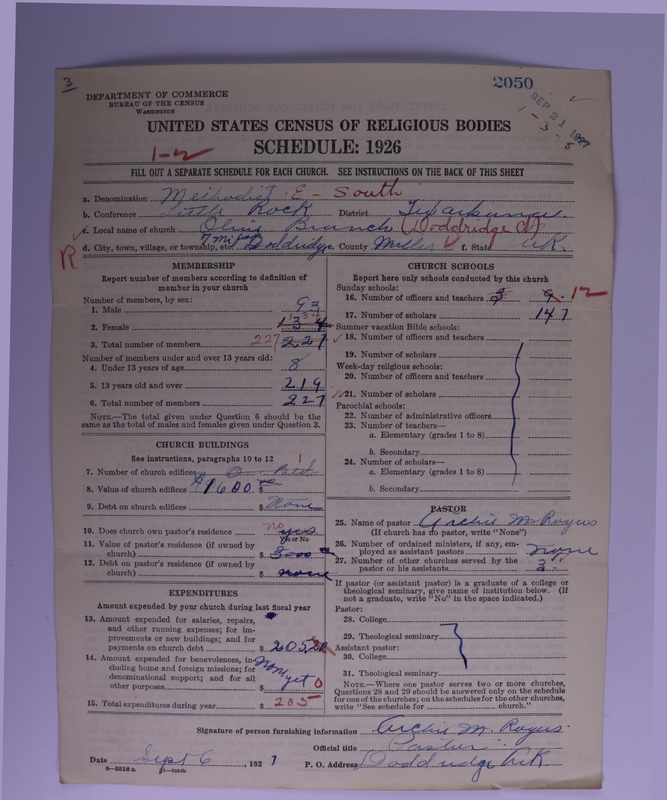 3
2050
DEPARTMENT OF COMMERCE
BUREAU OF THE CENSUS
WASHINGTON
SEP 21 1927
1-3-8
UNITED STATES CENSUS OF RELIGIOUS BODIES
SCHEDULE: 1926
1-2
FILL OUT A SEPARATE SCHEDULE FOR EACH CHURCH. SEE INSTRUCTIONS ON THE BACK OF THIS SHEET
a. Denomination Methodist E - South
b. Conference Little Rock District Texarkana
c. Local name of church Olive Branch (Doddridge Ct)
R
d. City, town, village, or township, etc. 7 Mi from Doddridge e. County Miller f. State Ark.
MEMBERSHIP
Report number of members according to definition of
member in your church
Number of members, by sex:
1. Male 93
2. Female 134
3. Total number of members 227 221
Number of members under and over 13 years old:
4. Under 13 years of age 8
5. 13 years old and over 219
6. Total number of members 227
NOTE.—The total given under Question 6 should be
same as the total of males and females given under Question 3.
CHURCH BUILDINGS
See instructions, paragraphs 10 to 12
7. Number of church edifices 1
8. Value of church edifices $1600 $
9. Debt on church edifices $ None
10. Does church own pastor's residence no yes
Yes or No
11. Value of pastor's residence (if owned by
church) $ 3000
12. Debt on pastor's residence (if owned by
church) $ none
EXPENDITURES
Amount expended by your church during last fiscal year
13. Amount expended for salaries, repairs,
and other running expenses; for im-
provements or new buildings; and for
payments on church debt $ 205
14. Amount expended for benevolences, in-
cluding home and foreign missions; for
denominational support; and for all
other purposes $ None yet 0
15. Total expenditures during year $ 205
CHURCH SCHOOLS
Report here only schools conducted by this church
Sunday schools:
16. Number of officers and teachers 9 12
17. Number of scholars 147
Summer vacation Bible schools:
18. Number of officers and teachers
19. Number of scholars
Week-day religious schools:
20. Number of officers and teachers
21. Number of scholars
Parochial schools:
22. Number of administrative officers
23. Number of teachers—
a. Elementary (grades 1 to 8)
b. Secondary
24. Number of scholars—
a. Elementary (grades 1 to 8)
b. Secondary
PASTOR
25. Name of pastor Archie M. Rogers
(If church has no pastor, write "None")
26. Number of ordained ministers, if any, em-
ployed as assistant pastors none
27. Number of other churches served by the
pastor or his assistants 3
If pastor (or assistant pastor) is a graduate of a college or
theological seminary, give name of institution below. (If
not a graduate, write "No" in the space indicated.)
Pastor:
28. College
29. Theological seminary
Assistant pastor:
30. College
31. Theological seminary
NOTE.—Where one pastor serves two or more churches,
Questions 28 and 29 should be answered only on the schedule
for one of the churches; on the schedules for the other churches,
write "See schedule for church."
Signature of person furnishing information Archie M. Rogers
Official title Pastor
Date Sept 6, 1927 P. O. Address Doddridge Ark
8—5218a